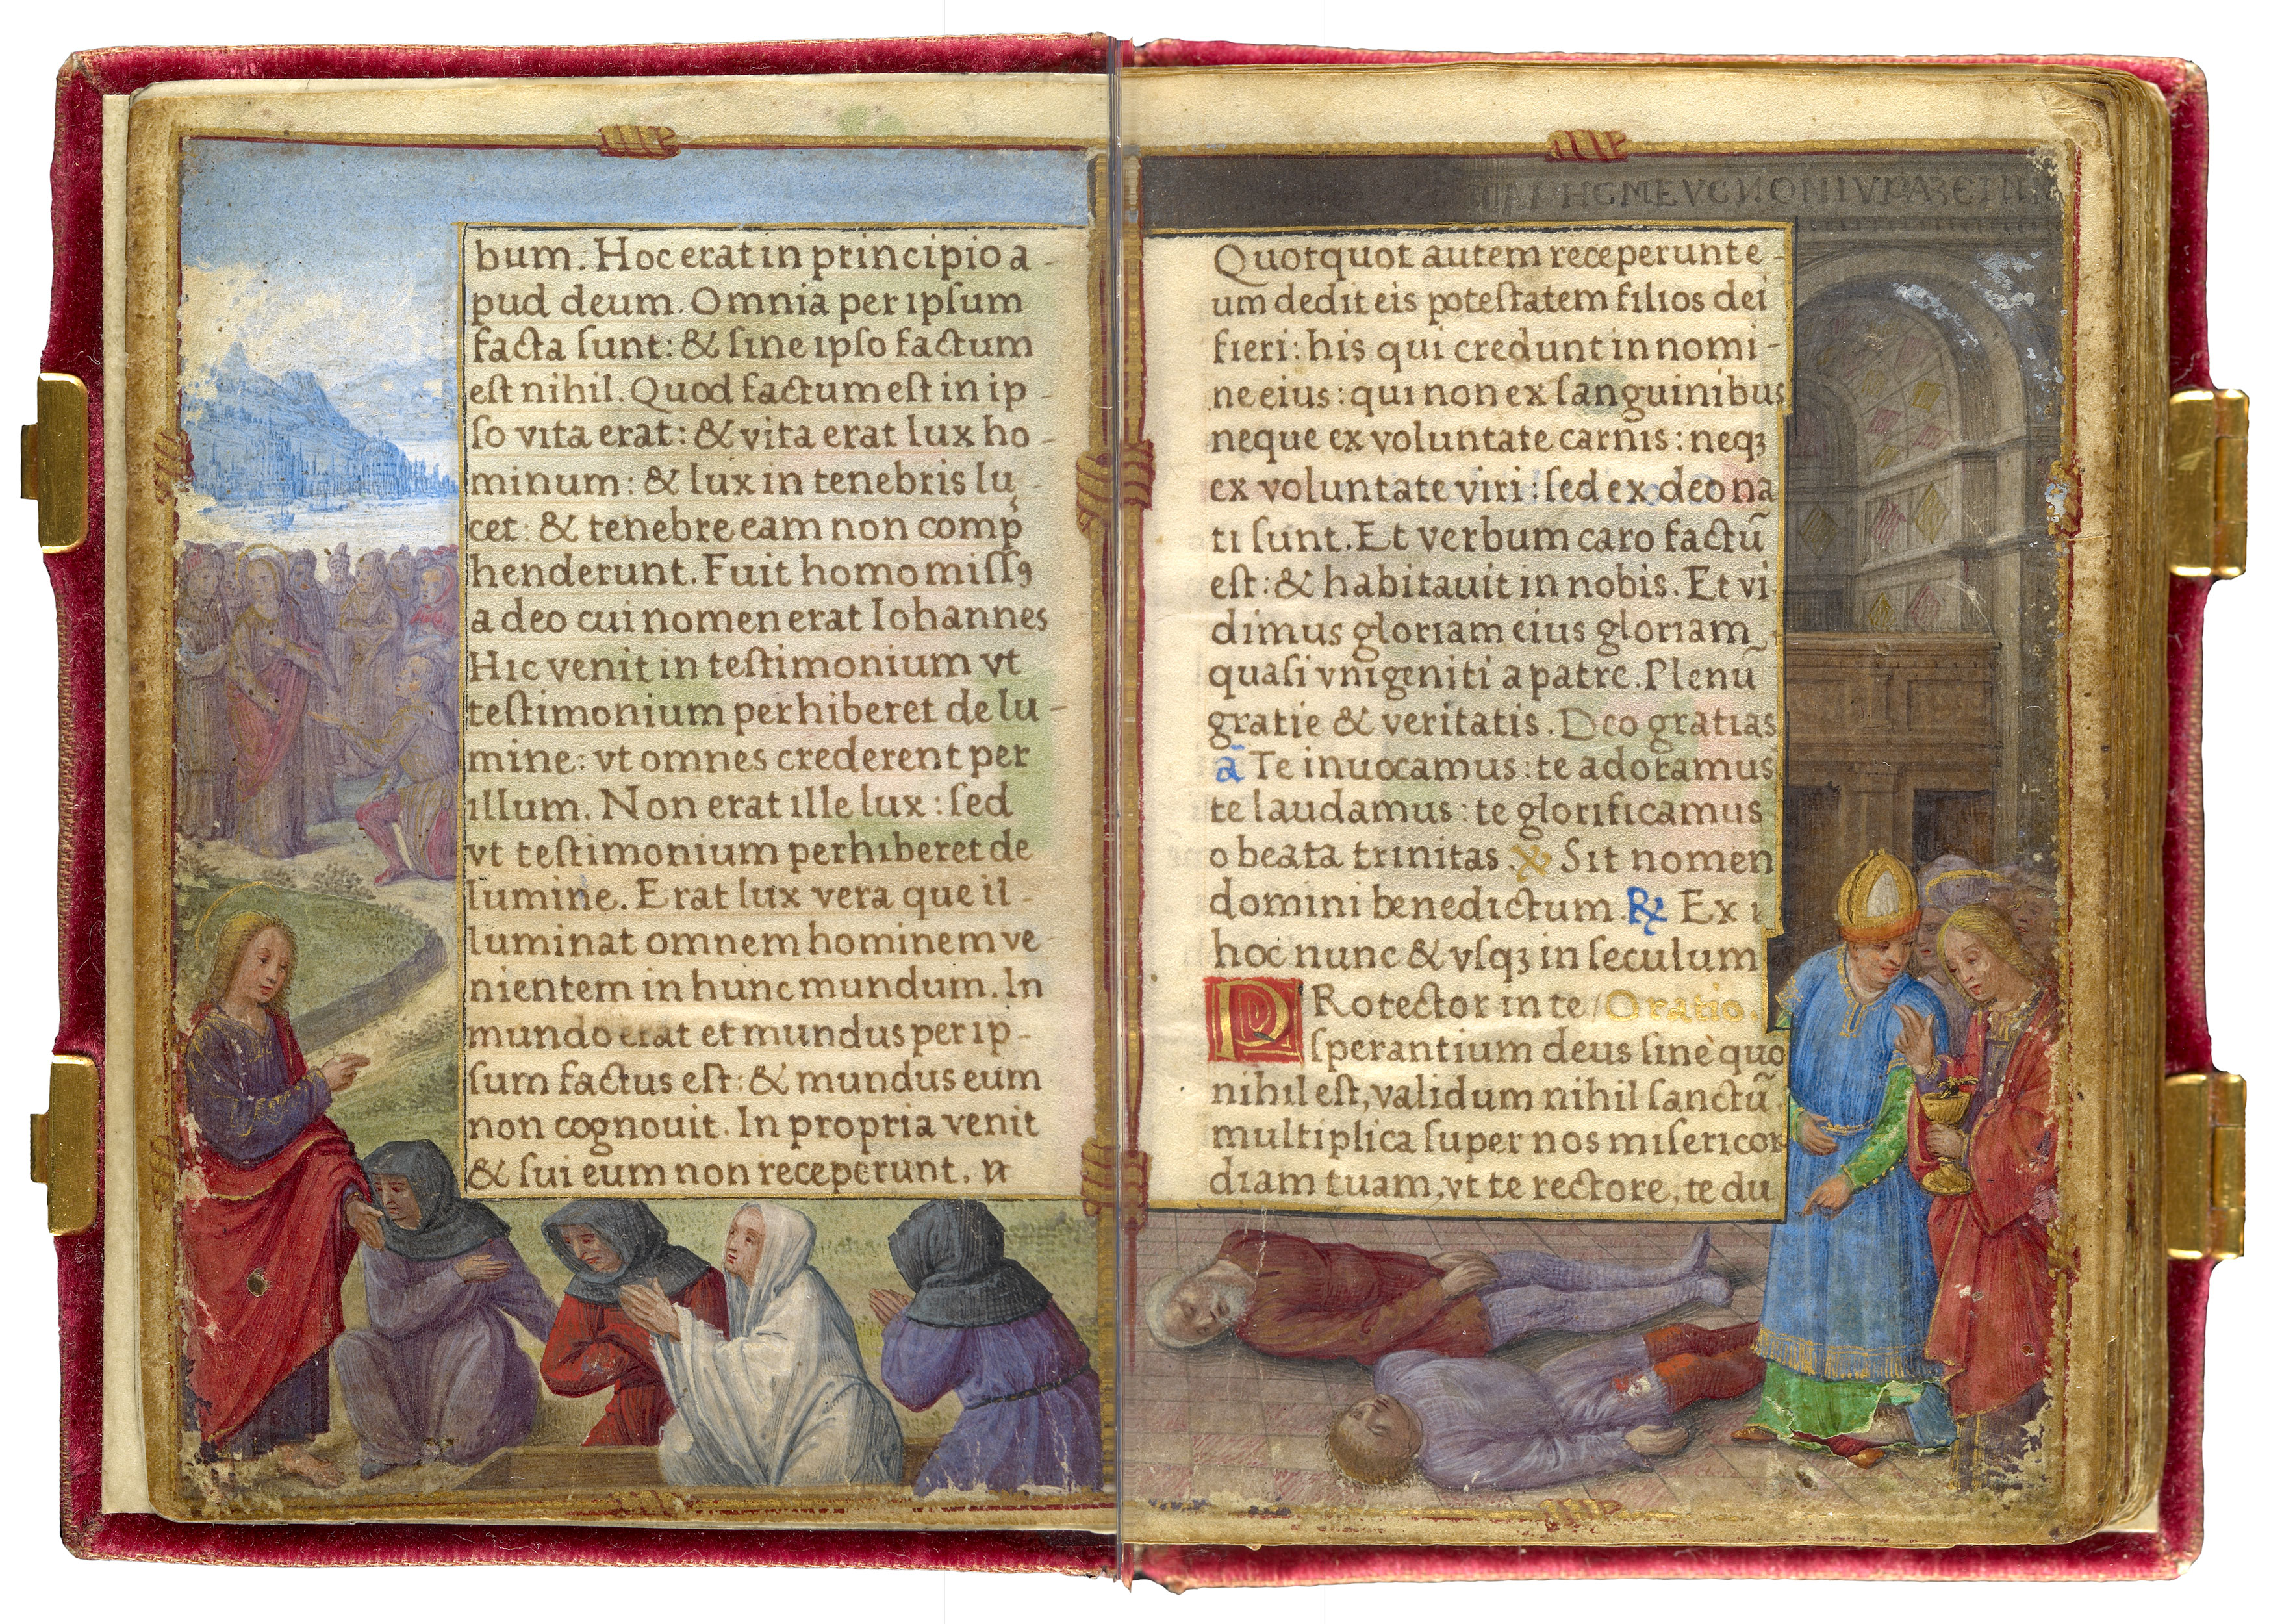 bum. Hoc erat in principio a-
pud deum. Omnia per ipſum
facta ſunt: & ſine ipſo factum
eſt nihil. Quod factum eſt in ip-
ſo vita erat: & vita erat lux ho-
minum: & lux in tenebris lu-
cet: & tenebre eam non comp̄
henderunt. Fuit homo miſſꝯ
a deo cui nomen erat Iohannes
Hic venit in teſtimonium vt
teſtimonium perhiberet de lu-
mine: vt omnes crederent per
illum. Non erat ille lux: ſed
vt teſtimonium perhiberet de
lumine. Erat lux vera que il-
luminat omnem hominem ve-
nientem in hunc mundum. In
mundo erat et mundus per ip-
ſum factus eſt: & mundus eum
non cognouit. In propria venit
& ſui eum non receperunt.
Quotquot autem receperunt e-
um dedit eis poteſtatem filios dei
fieri: his qui credunt in nomi-
ne eius: qui non ex ſanguinibus
neque ex voluntate carnis: neqꝫ
ex voluntate viri: ſed ex deo na
ti ſunt. Et verbum caro factū
eſt: & habitauit in nobis. Et vi
dimus gloriam eius gloriam
quaſi vnigeniti a patre. Plenū
gratie & veritatis. Deo gratias
ā Te inuocamus: te adoramus
te laudamus: te glorificamus
o beata trinitas. ℣ Sit nomen
domini benedictum. ℟ Ex
hoc nunc & vſqꝫ in ſeculum
PRotector in te / Oratio.
ſperantium deus ſine quo
nihil eſt, validum nihil ſanctū
multiplica ſuper nos miſericor
diam tuam, vt te rectore, te du